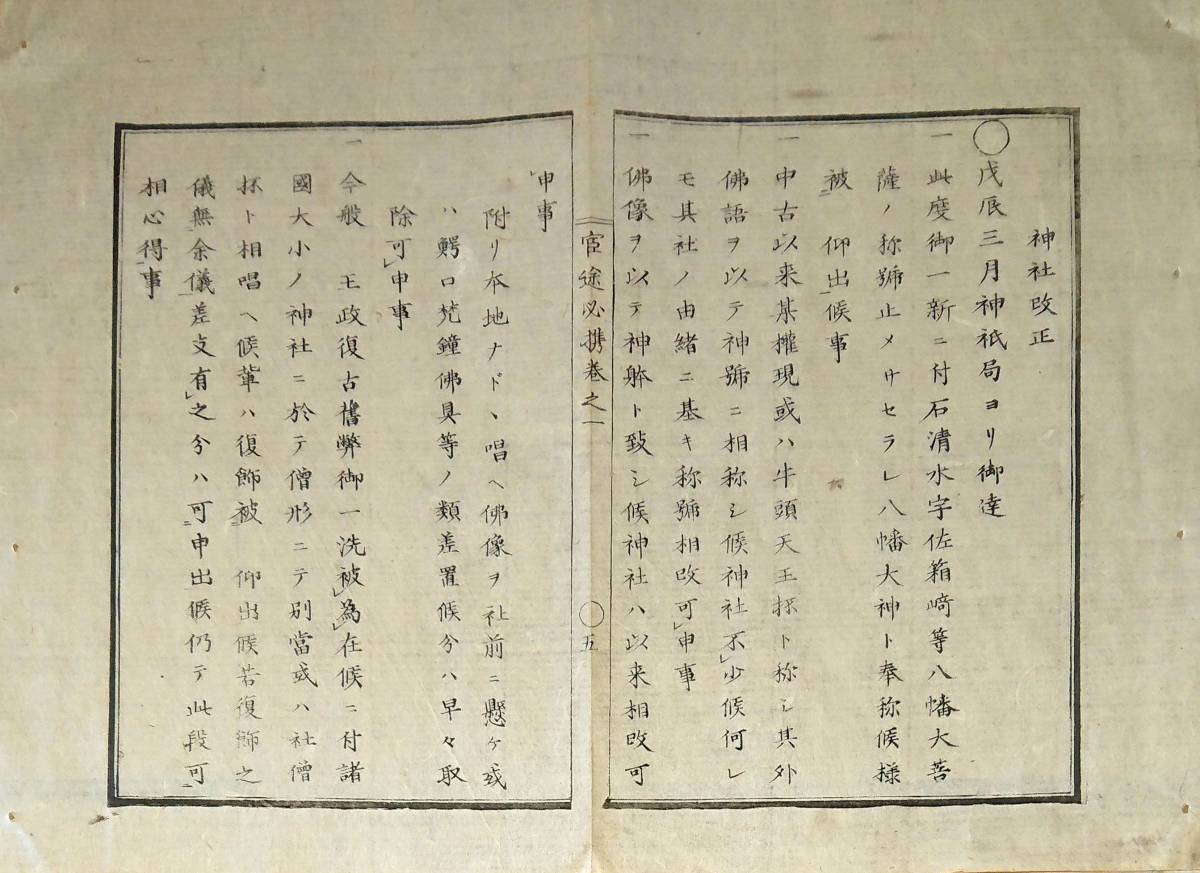 神社改正
◯戊辰三月神祇局ヨリ御達
一 此度御一新ニ付石清水宇佐箱崎等八幡大菩
薩ノ称號止メサセラレ八幡大神ト奉称候様
被 仰出候事
一 中古以来某権現或ハ牛頭天王抔ト称シ其外
佛語ヲ以テ神號ニ相称シ候神社不少候何レ
モ其社ノ由緒ニ基キ称號相改可申事
一 佛像ヲ以テ神躰ト致シ候神社ハ以来相改可
宦途必携巻之一 ◯五
申事
附リ本地ナドヽ唱ヘ佛像ヲ社前ニ懸ケ或
ハ鰐口梵鐘佛具等ノ類差置候分ハ早々取
除可申事
一 今般 王政復古舊弊御一洗被為在候ニ付諸
國大小ノ神社ニ於テ僧形ニテ別當或ハ社僧
抔ト相唱ヘ候輩ハ復飾被 仰出候若復飾之
儀無余儀差支有之分ハ可申出候仍テ此段可
相心得事